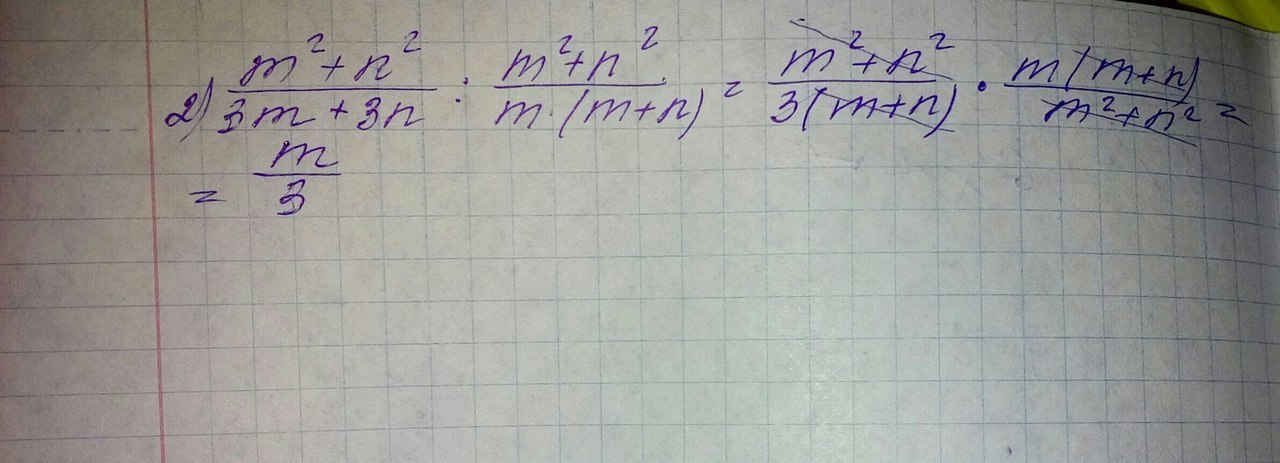 2) \frac{m^2+n^2}{3m+3n} : \frac{m^2+n^2}{m·(m+n)} = \frac{m^2+n^2}{3(m+n)} · \frac{m(m+n)}{m^2+n^2} =
= \frac{m}{3}